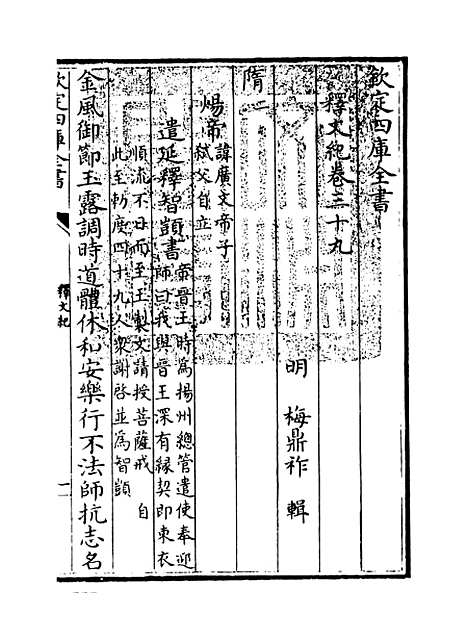 欽定四庫全書
釋文紀卷三十九
明 梅鼎祚 輯
隋一
煬帝
諱廣文帝子
弑父自立
遣延釋智顗書
帝晉王時為揚州總管遣使奉迎
師曰我與晉王深有緣契即束衣
順流不日而至王製文請授菩薩戒 自
此至剏度四十九人衆謝啓並為智顗
金風御節玉露調時道體休和安樂行不法師抗志名
欽定四庫全書
釋文紀
一